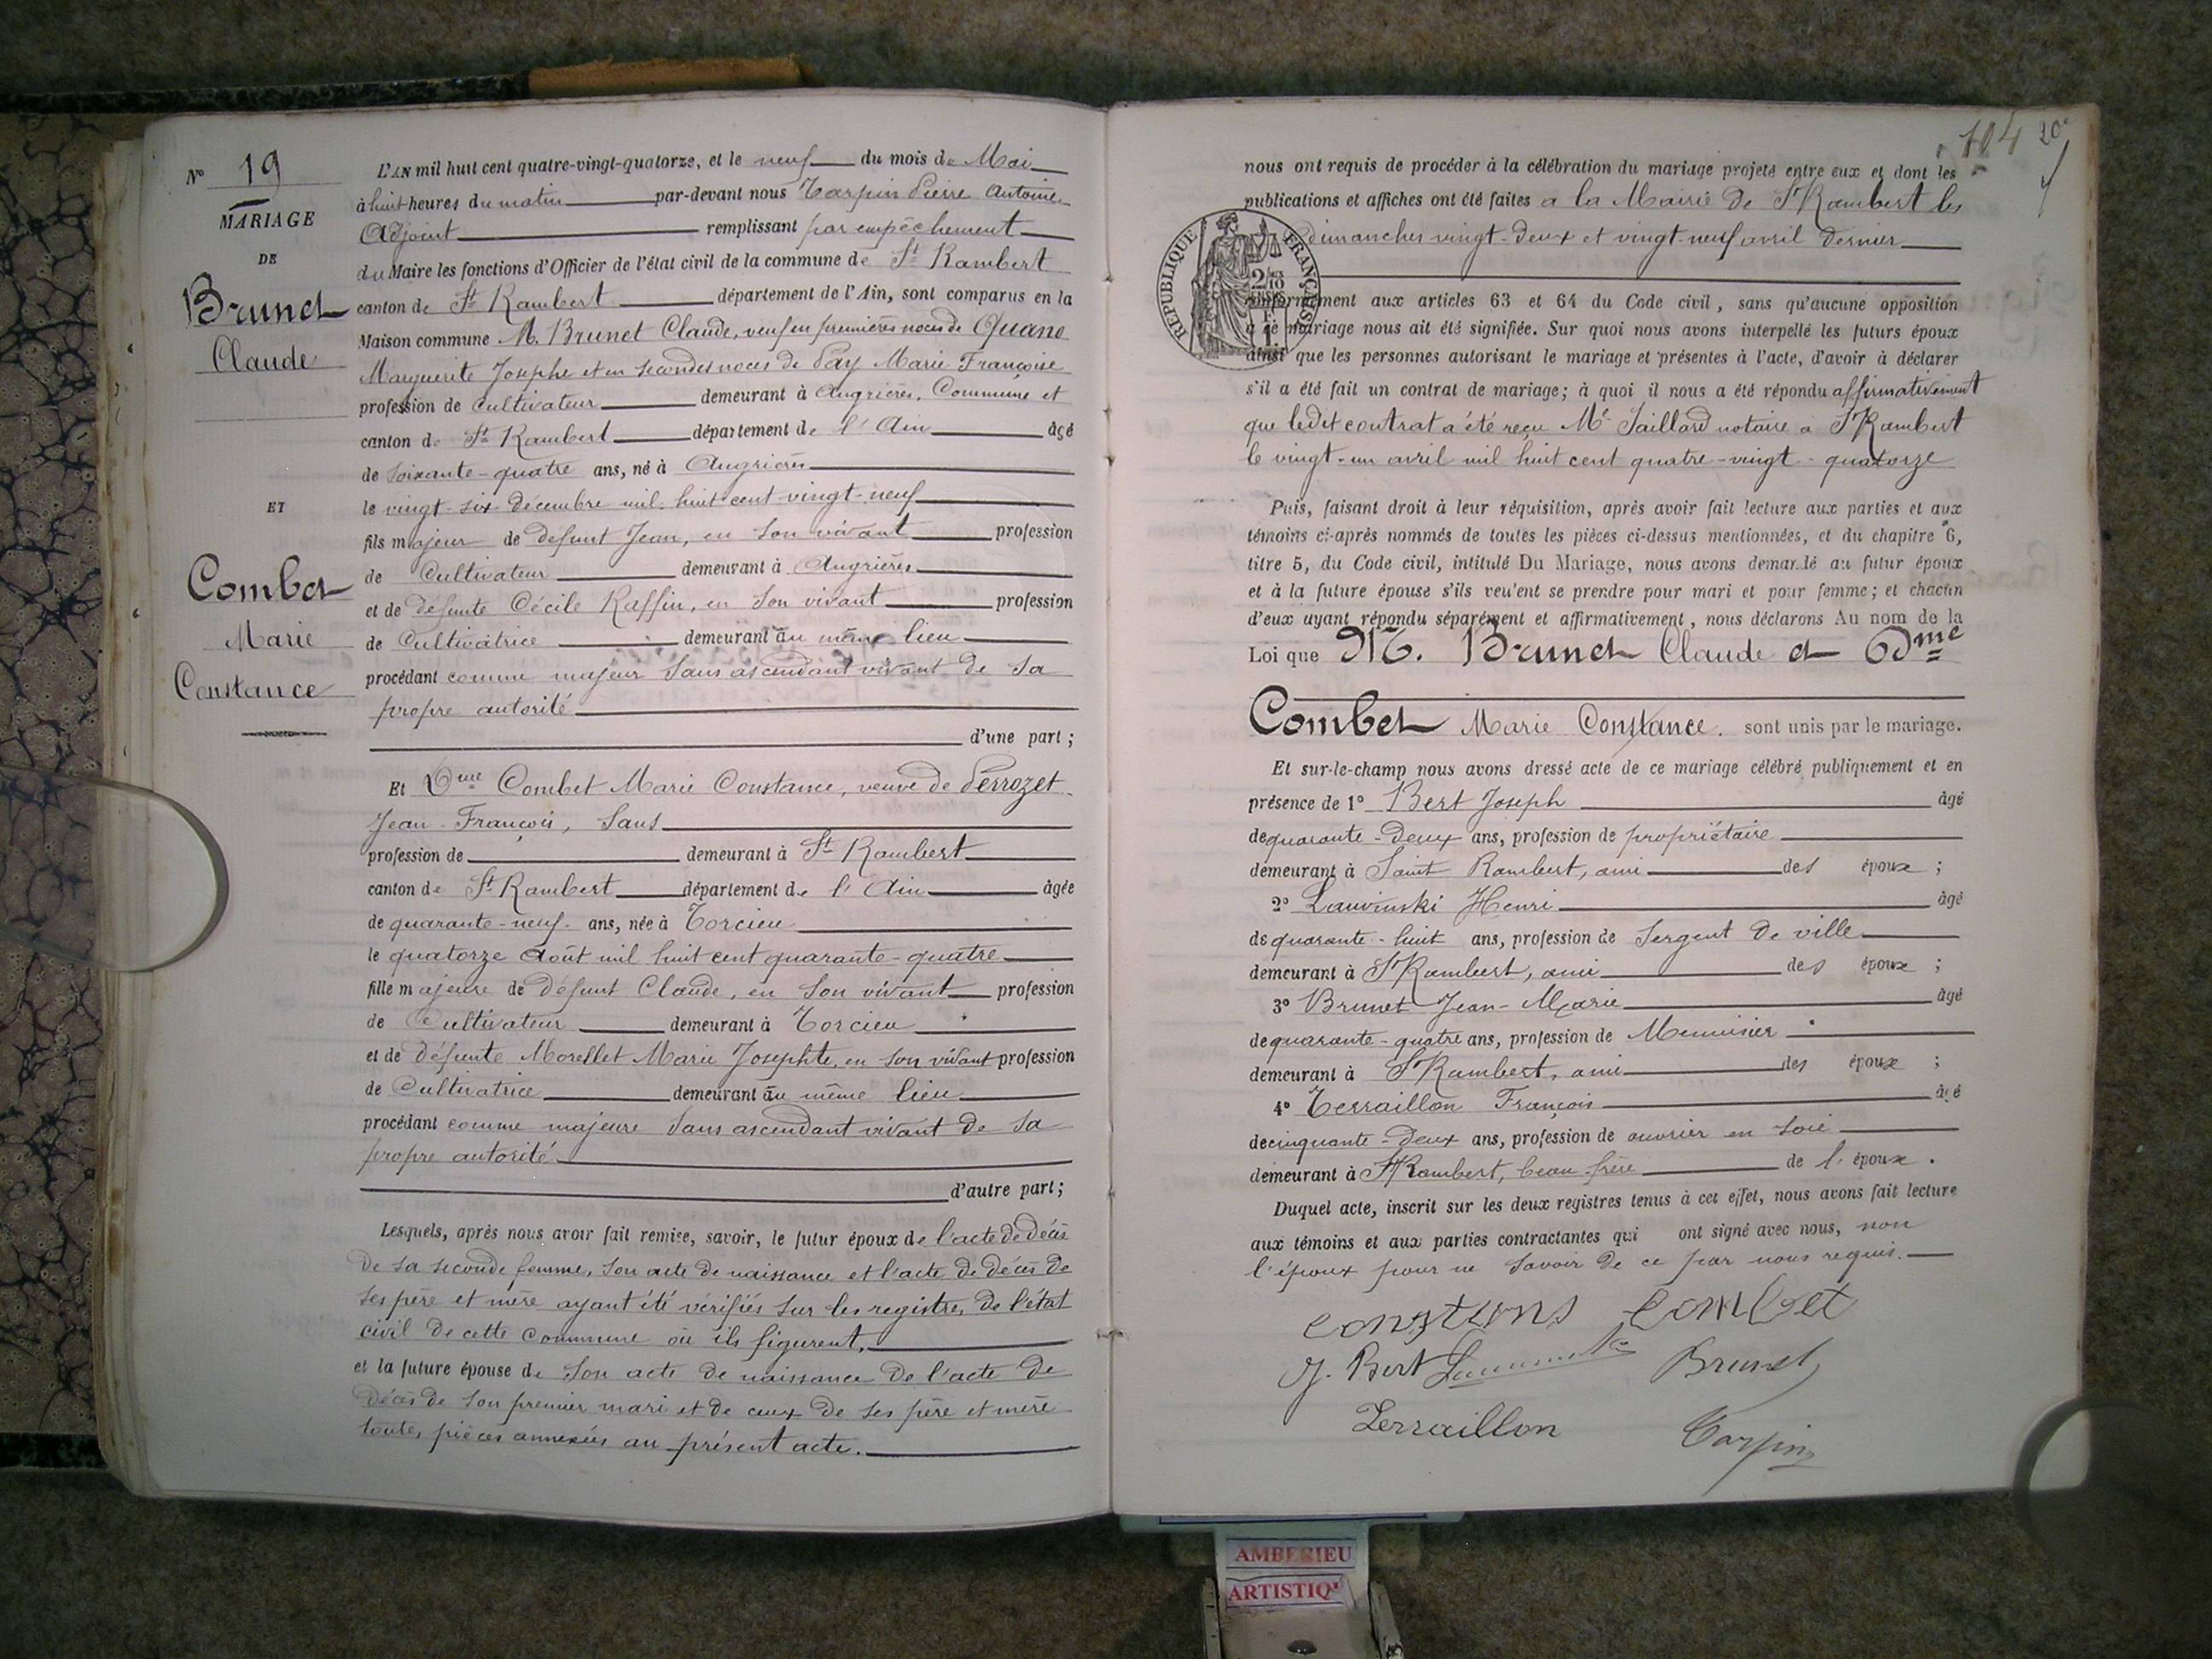 Nº 19
MARIAGE
DE
Brunet
Claude
ET
Combet
Marie
Constance
L'AN mil huit cent quatre-vingt-quatorze, et le neuf du mois de Mai
à huit heures du matin par-devant nous Tarpin Pierre Antoine
Adjoint remplissant par empêchement
du Maire les fonctions d'Officier de l'état civil de la commune de St Rambert
canton de St Rambert département de l'Ain, sont comparus en la
Maison commune M. Brunet Claude, veuf en premières noces de Quano
Marguerite Josephe et en secondes noces de Pay Marie Françoise
profession de Cultivateur demeurant à Angrières, Commune et
canton de St Rambert département de l'Ain âgé
de soixante-quatre ans, né à Angrières
le vingt-six décembre mil huit cent vingt-neuf
fils majeur de défunt Jean, en son vivant profession
de Cultivateur demeurant à Angrières
et de défunte Cécile Raffin, en son vivant profession
de Cultivatrice demeurant au même lieu
procédant comme majeur sans ascendant vivant de sa
propre autorité
d'une part ;
Et Dme Combet Marie Constance, veuve de Perrozet
Jean-François, sans
profession de demeurant à St Rambert
canton de St Rambert département de l'Ain âgée
de quarante-neuf ans, née à Torcieu
le quatorze août mil huit cent quarante-quatre
fille majeure de défunt Claude, en son vivant profession
de Cultivateur demeurant à Torcieu
et de défunte Morellet Marie Josephte, en son vivant profession
de Cultivatrice demeurant au même lieu
procédant comme majeure sans ascendant vivant de sa
propre autorité
d'autre part ;
Lesquels, après nous avoir fait remise, savoir, le futur époux de l'acte de décès
de sa seconde femme, son acte de naissance et l'acte de décès de
ses père et mère ayant été vérifiés sur les registres de l'état
civil de cette commune où ils figurent,
et la future épouse de son acte de naissance de l'acte de
décès de son premier mari et de ceux de ses père et mère
toutes pièces annexées au présent acte.
104 20e
nous ont requis de procéder à la célébration du mariage projeté entre eux et dont les
publications et affiches ont été faites a la Mairie de St Rambert les
dimanches vingt-deux et vingt-neuf avril dernier
RÉPUBLIQUE FRANÇAISE
conformément aux articles 63 et 64 du Code civil, sans qu'aucune opposition
à ce mariage nous ait été signifiée. Sur quoi nous avons interpellé les futurs époux
ainsi que les personnes autorisant le mariage et présentes à l'acte, d'avoir à déclarer
s'il a été fait un contrat de mariage ; à quoi il nous a été répondu affirmativement
que ledit contrat a été reçu Me Saillard notaire à St Rambert
le vingt-un avril mil huit cent quatre-vingt-quatorze
Puis, faisant droit à leur réquisition, après avoir fait lecture aux parties et aux
témoins ci-après nommés de toutes les pièces ci-dessus mentionnées, et du chapitre 6,
titre 5, du Code civil, intitulé Du Mariage, nous avons demandé au futur époux
et à la future épouse s'ils veulent se prendre pour mari et pour femme ; et chacun
d'eux ayant répondu séparément et affirmativement, nous déclarons Au nom de la
Loi que M. Brunet Claude et Dme
Combet Marie Constance. sont unis par le mariage.
Et sur-le-champ nous avons dressé acte de ce mariage célébré publiquement et en
présence de 1º Bert Joseph âgé
de quarante-deux ans, profession de propriétaire
demeurant à Saint Rambert, ami des époux ;
2º Lauvinski Henri âgé
de quarante-huit ans, profession de Sergent de ville
demeurant à St Rambert, ami des époux ;
3º Brunet Jean-Marie âgé
de quarante-quatre ans, profession de Menuisier
demeurant à St Rambert, ami des époux ;
4º Terraillon François âgé
de cinquante-deux ans, profession de ouvrier en soie
demeurant à St Rambert, beau-frère de l'époux.
Duquel acte, inscrit sur les deux registres tenus à cet effet, nous avons fait lecture
aux témoins et aux parties contractantes qui ont signé avec nous, non
l'époux pour ne savoir de ce par nous requis.
constons Combet
J. Bert Brunet
Terraillon Tarpin
AMBERIEU
ARTISTIQ